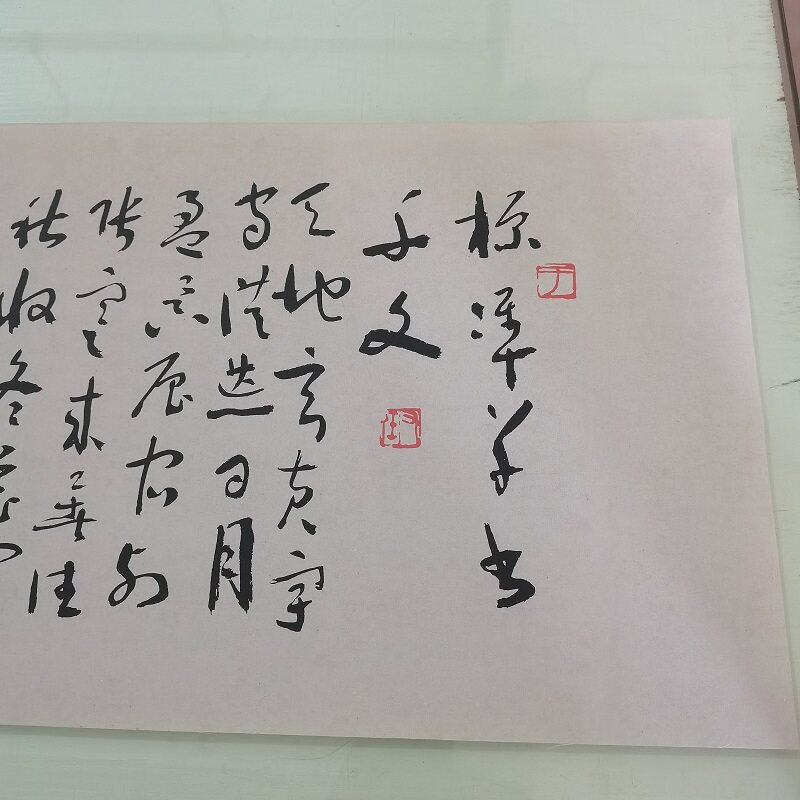 標準草書
千文
天地玄黃宇
宙洪荒日月
盈昃辰宿列
張寒來暑往
秋收冬藏